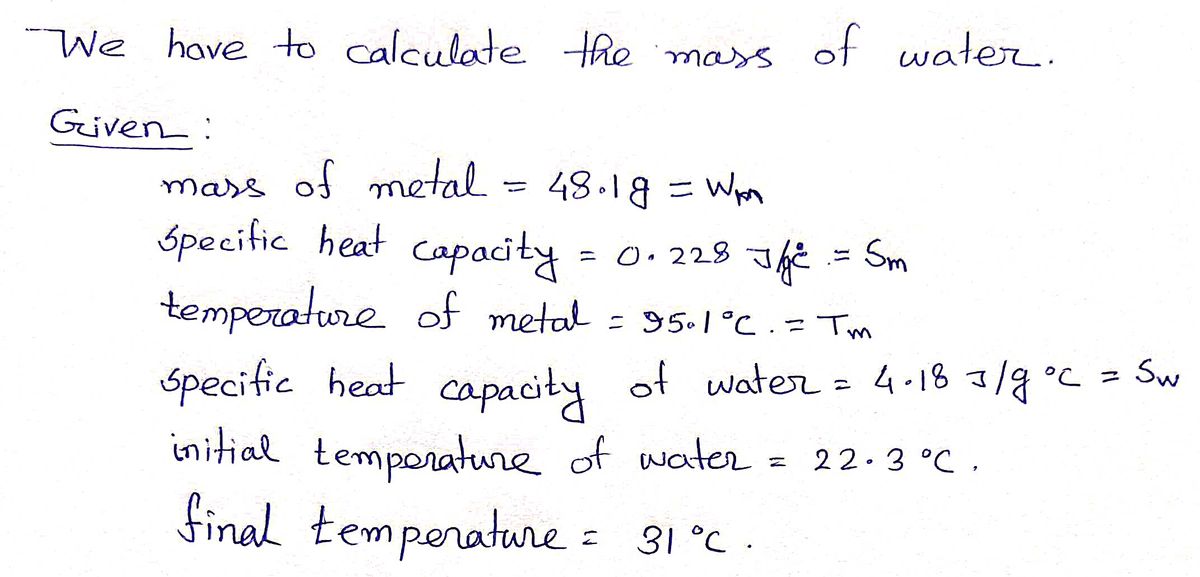 We have to calculate the mass of water.
Given :
mass of metal = 48.1g = Wm
specific heat capacity = 0.228 J/g°C .= Sm
temperature of metal = 95.1°C .= Tm
specific heat capacity of water = 4.18 J/g °C = Sw
initial temperature of water = 22.3 °C .
final temperature = 31 °C .